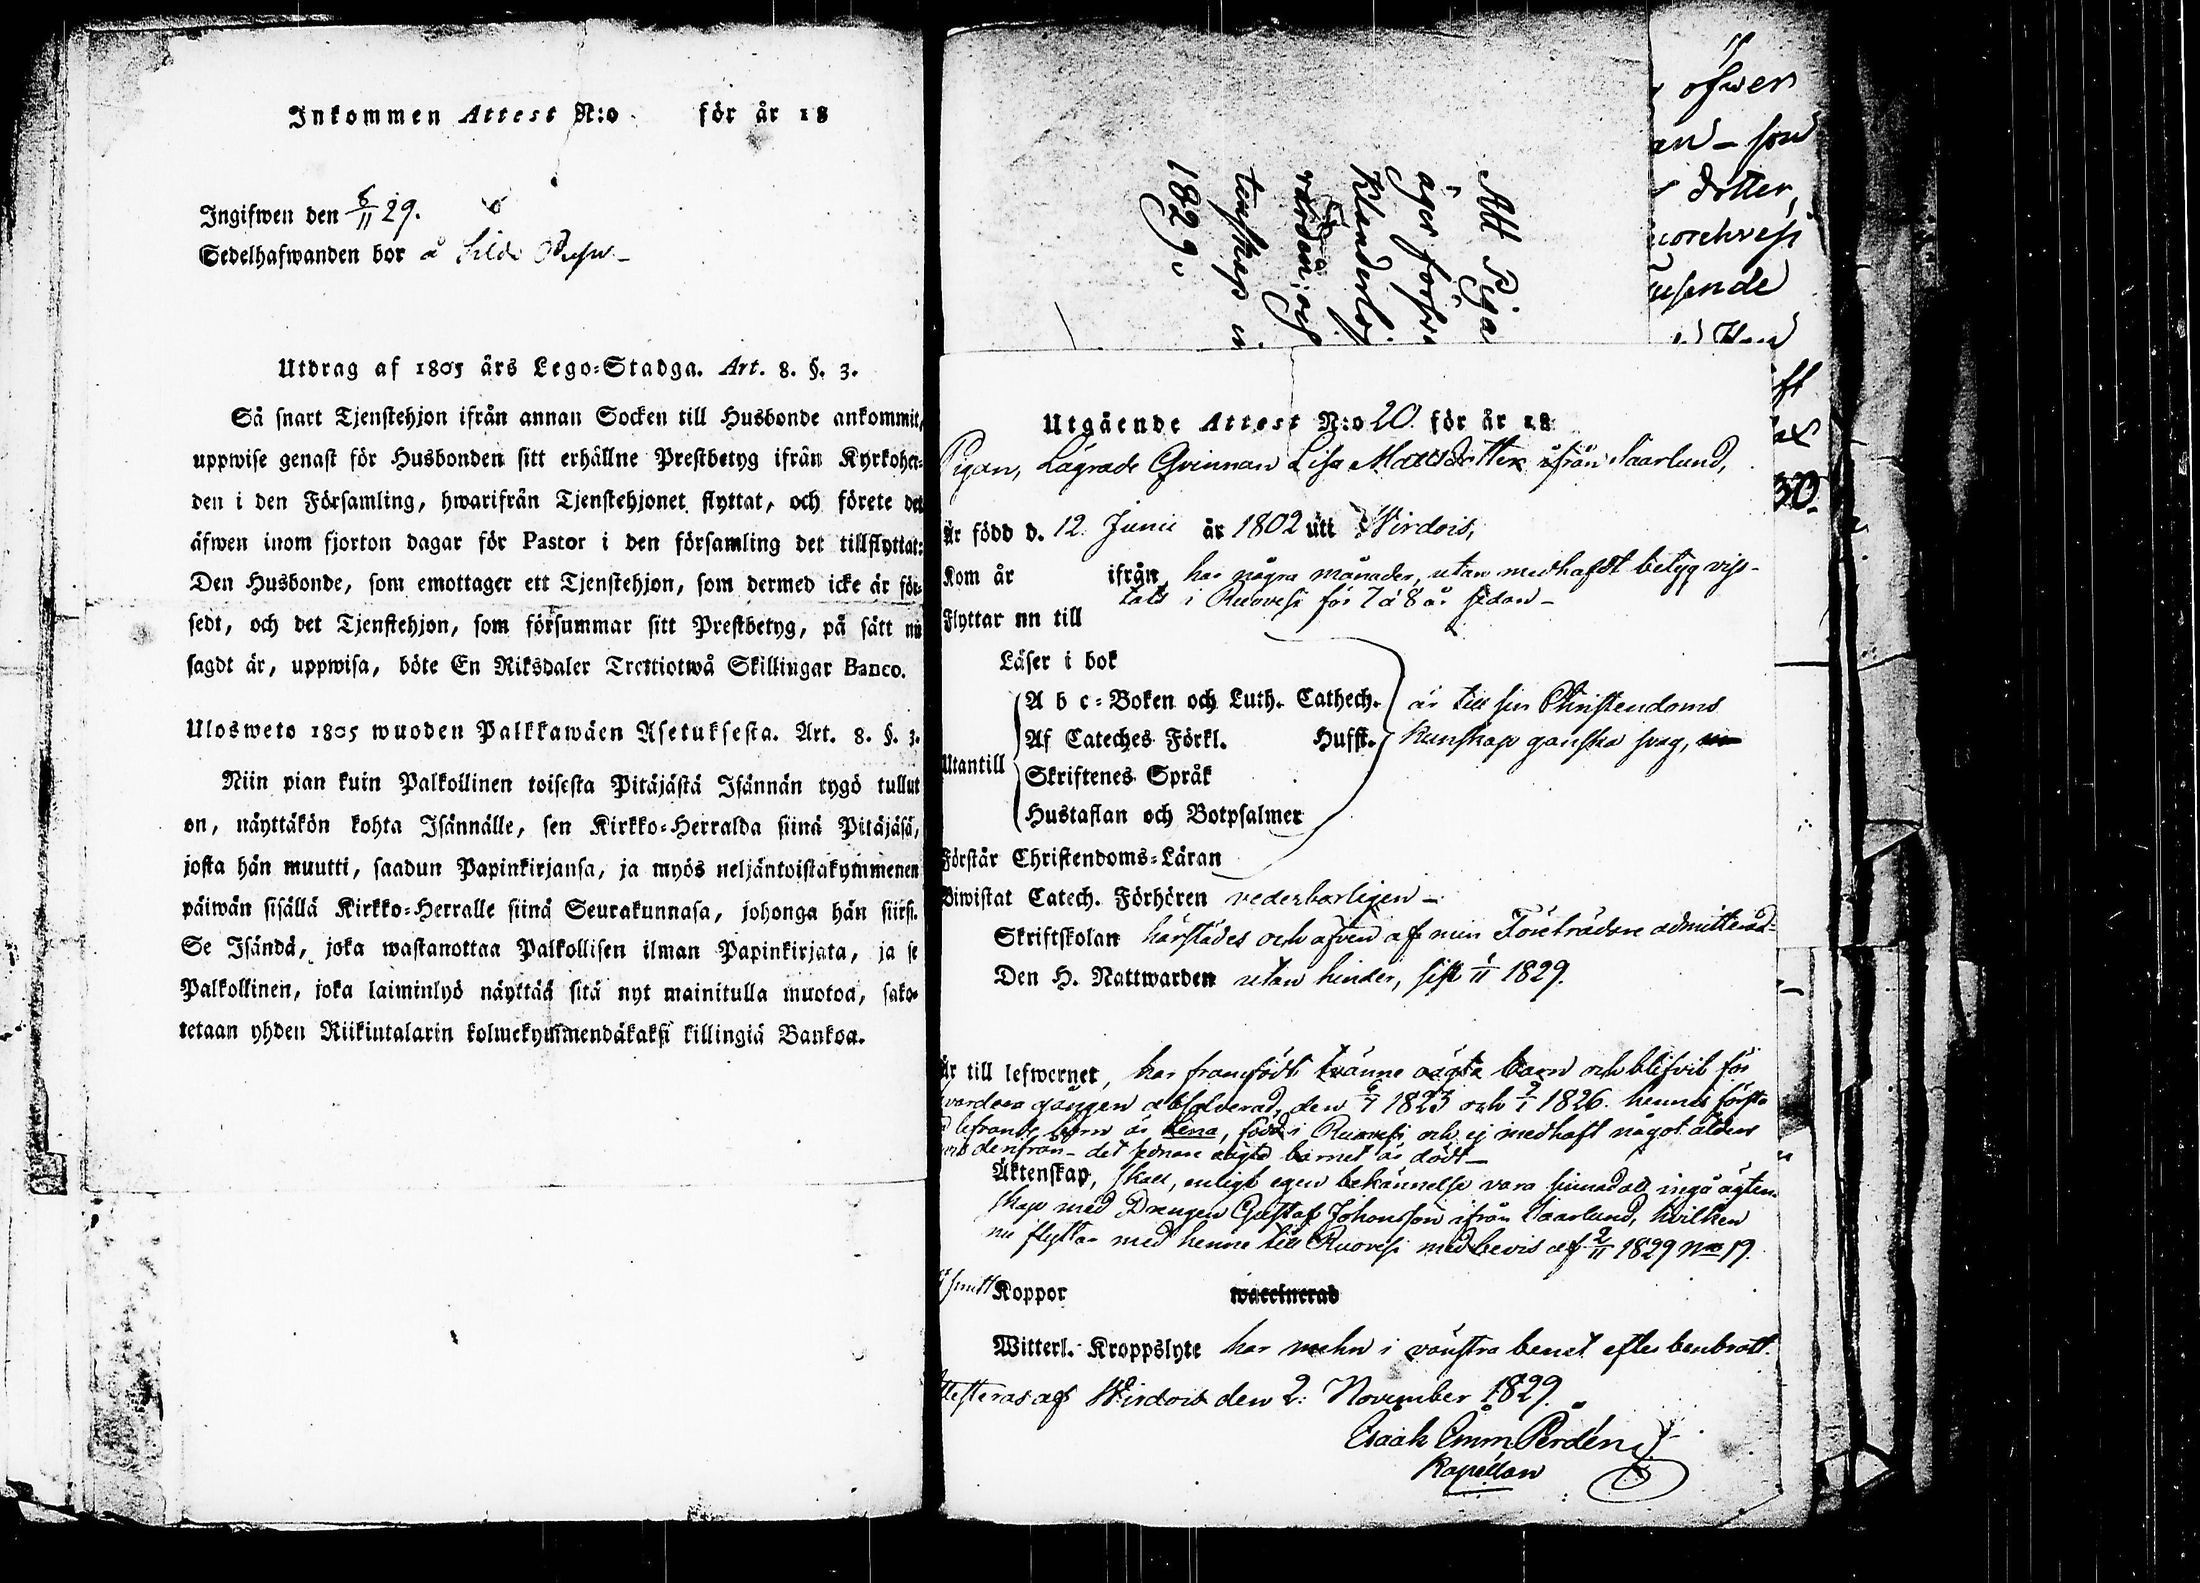 Inkommen Attest N:o för år 18
Ingifwen den 8/11 29.
Sedelhafwanden bor å
Utdrag af 1805 års Lego=Stadga. Art. 8. §. 3.
Så snart Tjenstehjon ifrån annan Socken till Husbonde ankommit,
uppwise genast för Husbonden sitt erhållne Prestbetyg ifrån Kyrkoher=
den i den Församling, hwarifrån Tjenstehjonet flyttat, och förete det
äfwen inom fjorton dagar för Pastor i den församling det tillflyttat:
Den Husbonde, som emottager ett Tjenstehjon, som dermed icke är för=
sedt, och det Tjenstehjon, som försummar sitt Prestbetyg, på sätt nu
sagdt är, uppwisa, böte En Riksdaler Trettiotwå Skillingar Banco.
Ulosweto 1805 wuoden Palkkawäen Asetuksesta. Art. 8. §. 3.
Niin pian kuin Palkollinen toisesta Pitäjästä Isännän tygö tullut
on, näyttäkön kohta Isännälle, sen Kirkko=Herralda siinä Pitäjäsä,
josta hän muutti, saadun Papinkirjansa, ja myös neljäntoistakymmenen
päiwän sisällä Kirkko=Herralle siinä Seurakunnasa, johonga hän siirsi.
Se Isändä, joka wastanottaa Palkollisen ilman Papinkirjata, ja se
Palkollinen, joka laiminlyö näyttää sitä nyt mainitulla muotoa, sako=
tetaan yhden Riikintalarin kolmekymmendäkaksi killingiä Bankoa.
Att Piga
äger förfr
Klanderlö
värdan, och
tenskap i
1829.
öfwer
an – son
dotter,
usende
30.
Utgående Attest N:o 20 för år 18
Pigan, Lägrade Qvinnan Lisa Mattsdotter ifrån Saarlund,
Är född d. 12 Junii år 1802 uti Wirdois,
Kom år ifrån, har några månader, utan medhafdt betyg vis-
tats i Ruovesi för 7 à 8 år sedan –
Flyttar nu till
Läser i bok
A b c=Boken och Luth. Cathech. är till sin Christendoms
Af Cateches Förkl. Husst. kunskap ganska svag,
Utantill
Skriftenes Språk
Hustaflan och Botpsalmer
Förstår Christendoms=Läran
Biwistat Catech. Förhören vederborligen –
Skriftskolan härstädes och äfven af min Företrädare admitterad
Den H. Nattwarden utan hinder, sist 1/11 1829.
Är till lefwernet, har framfödt tvänne oägta barn och blifvit för
hvardera gången absolverad, den 6/7 1823 och 2/1 1826. hennes första
lefrande barn är Lena, född i Ruovesi och ej medhaft något
denfrån – det sednare oägta barnet är dödt –
Äktenskap, skall, enligt egen bekännelse vara sinnad att ingå ägten-
skap med Drengen Gustaf Johansson ifrån Saarlund, hvilken
nu flyttar med henne till Ruovesi med bevis af 2/11 1829 No 19.
Koppor waccinerad
Witterl. Kroppslyte har mehn i vänstra benet efter benbrott.
Attesteras af Wirdois den 2: November 1829.
Esaak Emm. Perdén
Kapellan